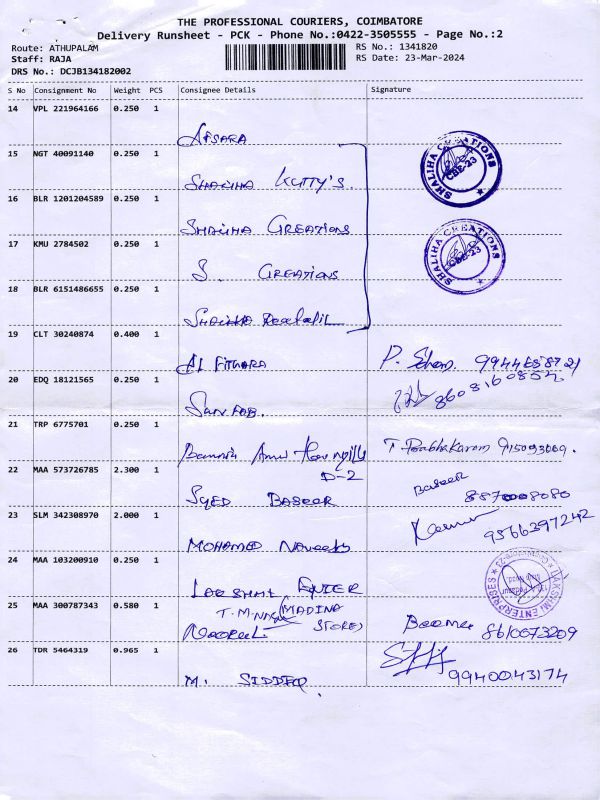 THE PROFESSIONAL COURIERS, COIMBATORE
Delivery Runsheet - PCK - Phone No.:0422-3505555 - Page No.:2
Route: ATHUPALAM RS No.: 1341820
Staff: RAJA RS Date: 23-Mar-2024
DRS No.: DCJB134182002
S No Consignment No Weight PCS Consignee Details Signature
14 VPL 221964166 0.250 1
AFSARA
15 NGT 40091140 0.250 1
SHALIHA KUTTY'S.
SHALIHA CREATIONS
CBE-23
16 BLR 1201204589 0.250 1
SHALIHA CREATIONS
17 KMU 2784502 0.250 1
S. CREATIONS
SHALIHA CREATIONS
CBE-23
18 BLR 6151486655 0.250 1
SHALIHA
19 CLT 30240874 0.400 1
AL FITHARA P. 9944658721
20 EDQ 18121565 0.250 1
8608160852
21 TRP 6775701 0.250 1
T. Prabhakaran
D-2
22 MAA 573726785 2.300 1
SYED BASEER Baseer
8870008080
23 SLM 342308970 2.000 1
MOHAMED 9566397242
24 MAA 103200910 0.250 1
LAKSHMI
LAKSHMI ENTERPRISES
25 MAA 300787343 0.580 1
T.M. MADINA
STORES
8610073209
26 TDR 5464319 0.965 1
M. SIDDEQ 9940043174